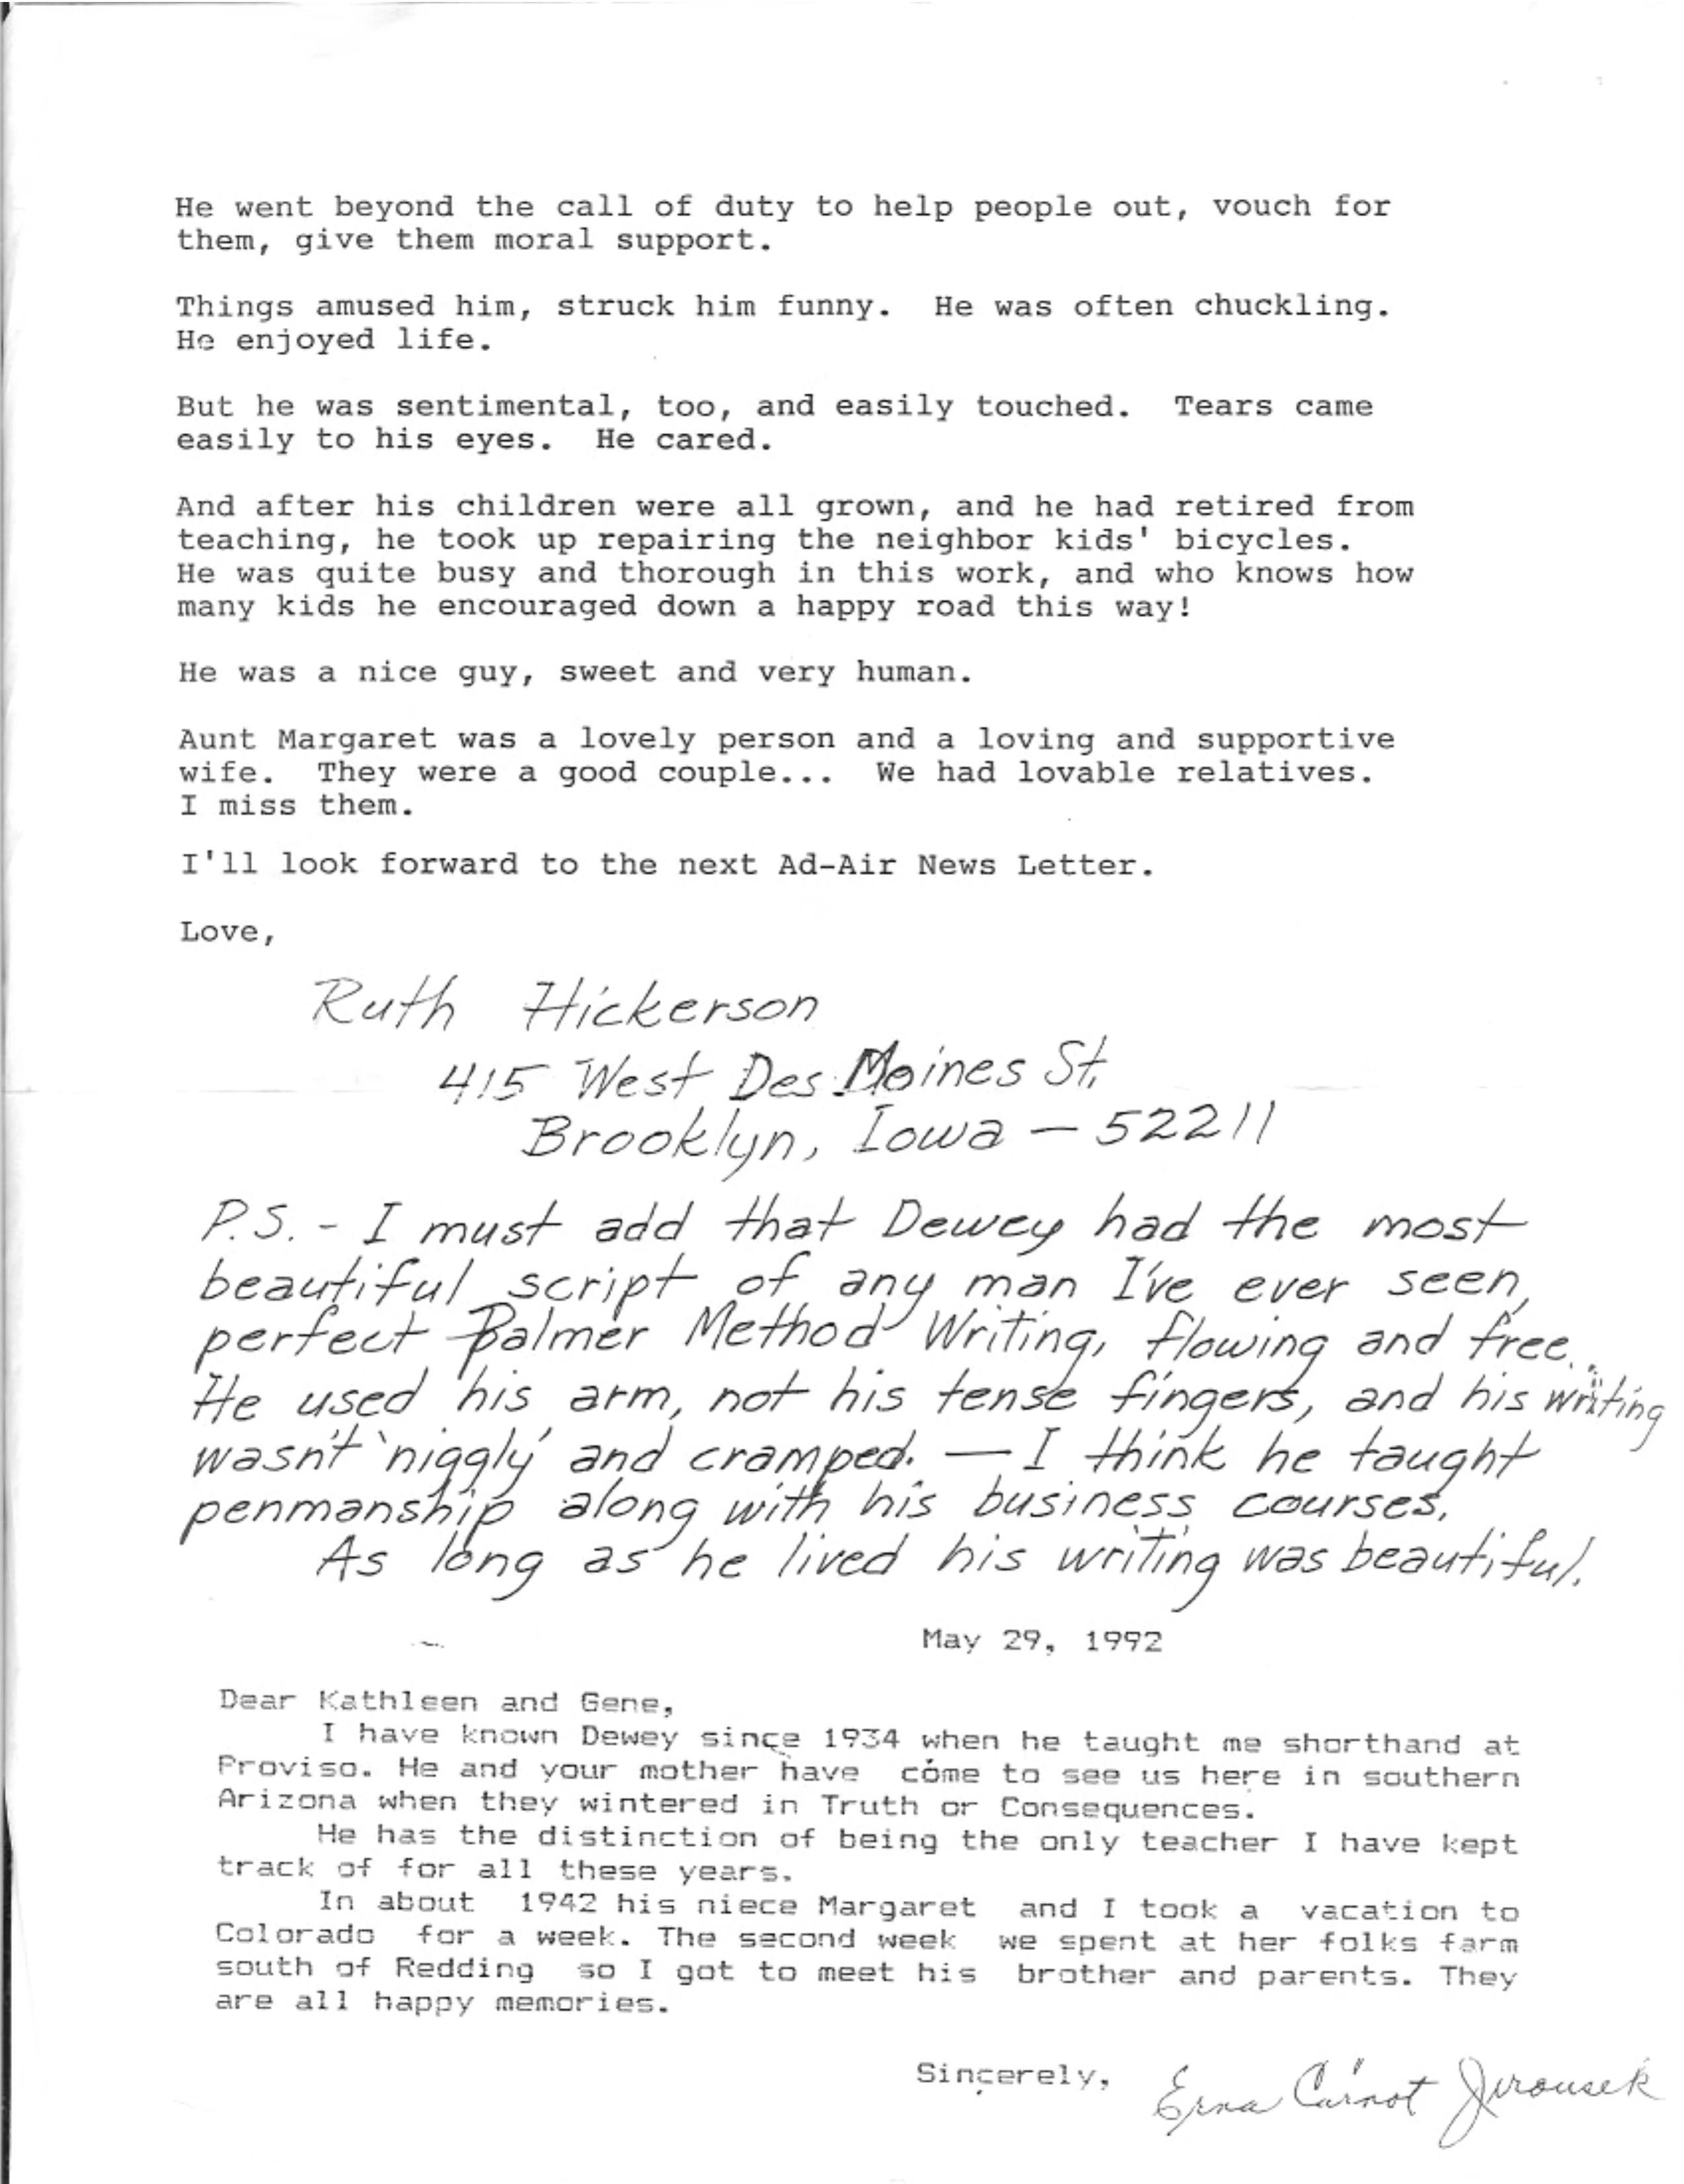 He went beyond the call of duty to help people out, vouch for
them, give them moral support.
Things amused him, struck him funny.  He was often chuckling.
He enjoyed life.
But he was sentimental, too, and easily touched.  Tears came
easily to his eyes.  He cared.
And after his children were all grown, and he had retired from
teaching, he took up repairing the neighbor kids' bicycles.
He was quite busy and thorough in this work, and who knows how
many kids he encouraged down a happy road this way!
He was a nice guy, sweet and very human.
Aunt Margaret was a lovely person and a loving and supportive
wife.  They were a good couple...  We had lovable relatives.
I miss them.
I'll look forward to the next Ad-Air News Letter.
Love,
Ruth Hickerson
415 West Des Moines St.
Brooklyn, Iowa — 52211
P.S. - I must add that Dewey had the most
beautiful script of any man I've ever seen,
perfect Palmer Method Writing, flowing and free.
He used his arm, not his tense fingers, and his writing
wasn't 'niggly' and cramped. — I think he taught
penmanship along with his business courses.
As long as he lived his writing was beautiful.
May 29, 1992
Dear Kathleen and Gene,
I have known Dewey since 1934 when he taught me shorthand at
Proviso. He and your mother have come to see us here in southern
Arizona when they wintered in Truth or Consequences.
He has the distinction of being the only teacher I have kept
track of for all these years.
In about 1942 his niece Margaret and I took a vacation to
Colorado for a week. The second week we spent at her folks farm
south of Redding so I got to meet his brother and parents. They
are all happy memories.
Sincerely, Erna Carnot Jirousek